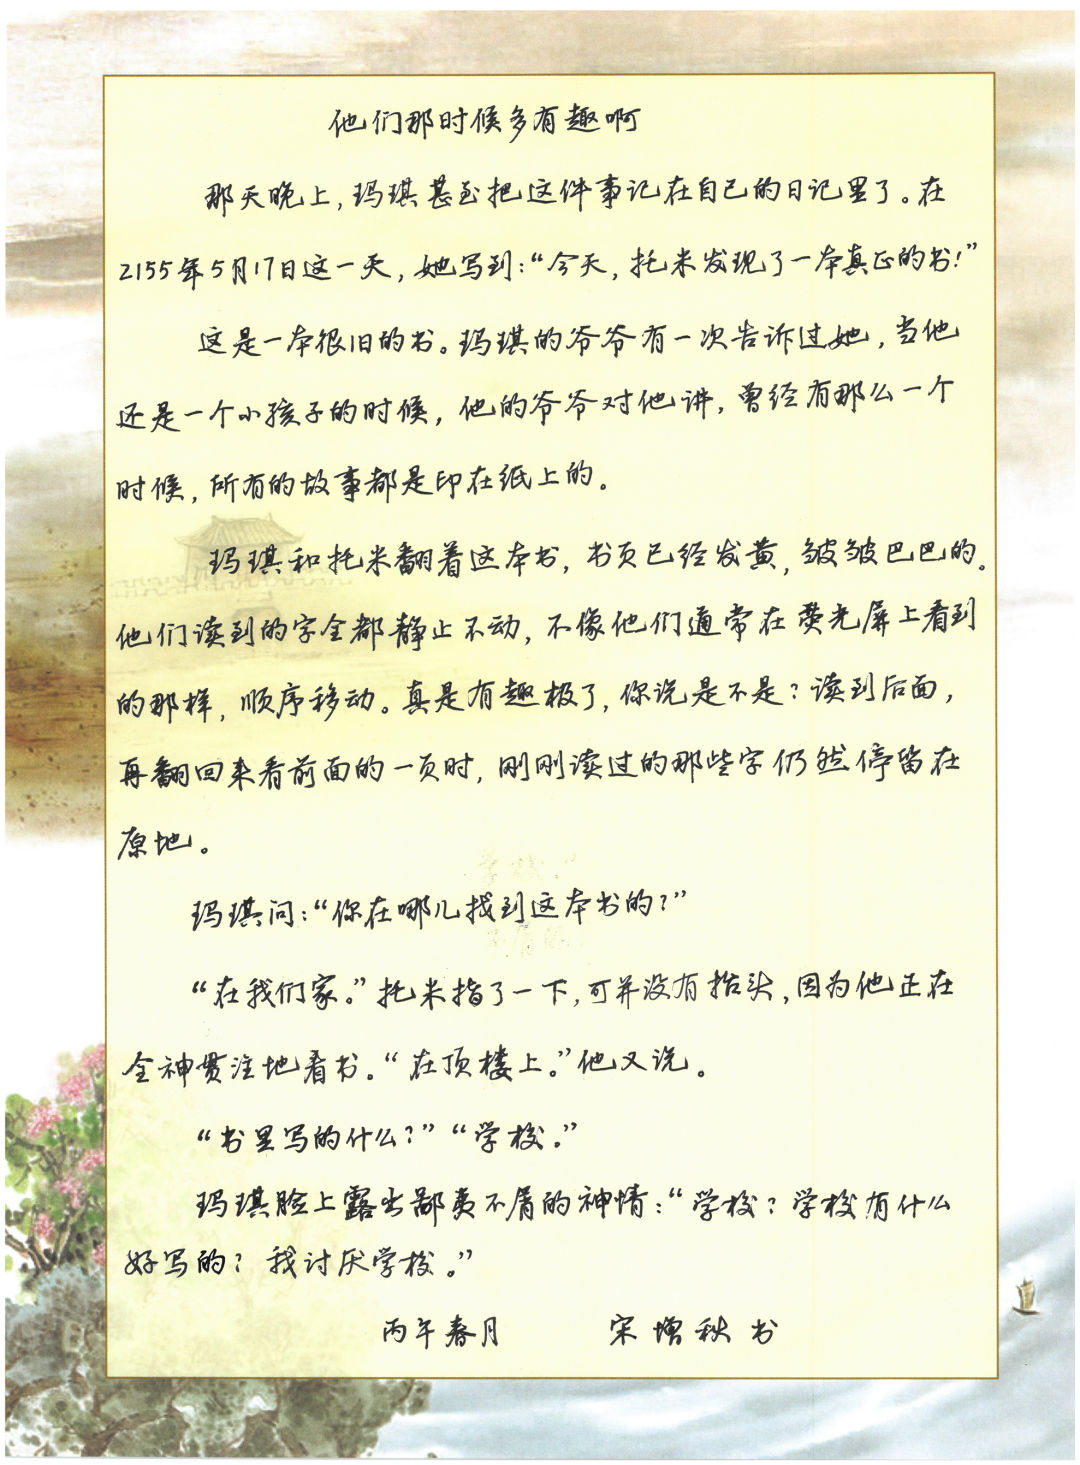 他们那时候多有趣啊
那天晚上，玛琪甚至把这件事记在自己的日记里了。在
2155年5月17日这一天，她写到：“今天，托米发现了一本真正的书！”
这是一本很旧的书。玛琪的爷爷有一次告诉过她，当他
还是一个小孩子的时候，他的爷爷对他讲，曾经有那么一个
时候，所有的故事都是印在纸上的。
玛琪和托米翻着这本书，书页已经发黄，皱皱巴巴的。
他们读到的字全都静止不动，不像他们通常在荧光屏上看到
的那样，顺序移动。真是有趣极了，你说是不是？读到后面，
再翻回来看前面的一页时，刚刚读过的那些字仍然停留在
原地。
玛琪问：“你在哪儿找到这本书的？”
“在我们家。”托米指了一下，可并没有抬头，因为他正在
全神贯注地看书。“在顶楼上。”他又说。
“书里写的什么？”“学校。”
玛琪脸上露出鄙夷不屑的神情：“学校？学校有什么
好写的？我讨厌学校。”
丙午春月 宋增秋书